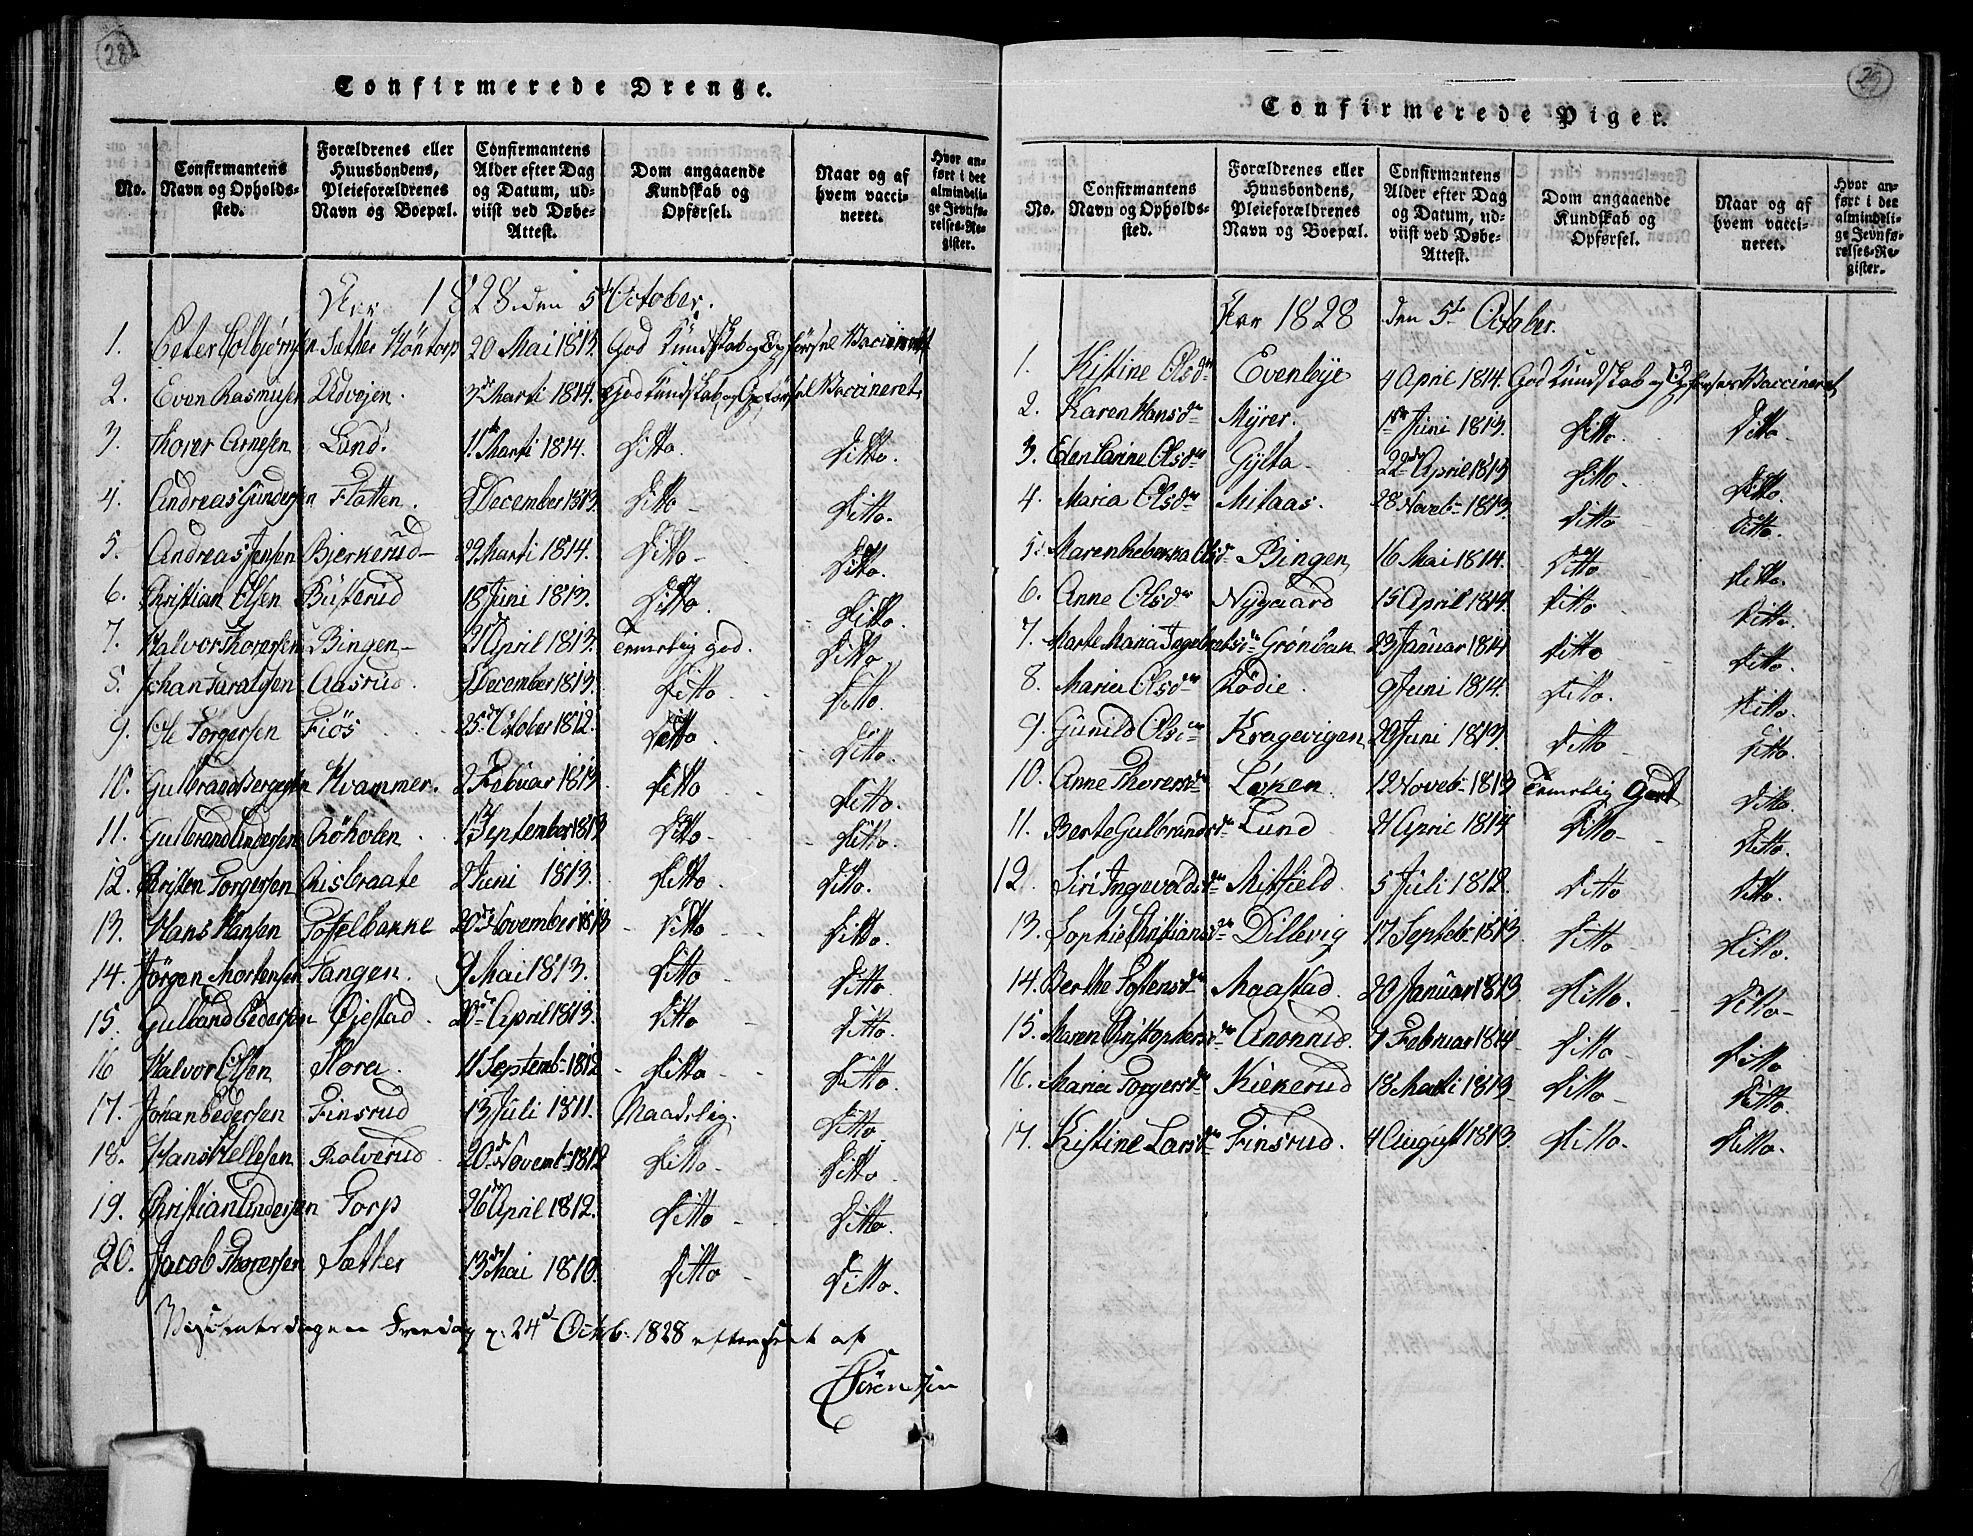 28
Confirmerede Drenge.
No.
Confirmantens Navn og Opholds-sted.
Forældrenes eller Huusbondens, Pleieforældrenes Navn og Boepæl.
Confirmantens Alder efter Dag og Datum, ud-viist ved Døbe-Attest.
Dom angaaende Kundskab og Opførsel.
Naar og af hvem vacci-neret.
Hvor an-ført i det almindeli-ge Jevnfø-relses-Re-gister.
Aar 1828 den 5te October.
1. Peter Colbjörnsen Sæther 20 Mai 1813. God Kundskab og Opførsel Vaccineret
2. Even Rasmusen Udvejen. 3de Marti 1814. God Kundskab og Opførsel Vaccineret
3. Thorer Arnesen Lund. 11te Marti 1814. Ditto. Ditto.
4. Andreas Gundersen Flatten. December 1813. Ditto - Ditto.
5. Andreas Jensen Bjerkerud - 29 Marti 1814. Ditto - Ditto.
6. Christian Olsen Busterud 18 Juni 1813. Ditto. Ditto.
7. Halvor Thoresen Bingen - April 1813. Temelig god. Ditto
8. Johan Haralsen Aasrud. December 1813. Ditto. Ditto.
9. Ole Torgersen Fiös 25de October 1812. Ditto. Ditto.
10. Gulbrand Bergersen Hvammer. 2 Februar 1813. Ditto. Ditto.
11. Gulbrand Andersen Röholen September 1813 Ditto - Ditto.
12. Christen Torgersen Risbraate 2 Juni 1813. Ditto. Ditto.
13. Hans Hansen Toffelbakke 20de November 1813 - Ditto. Ditto.
14. Jörgen Mortensen Tangen. 9 Mai 1813. Ditto - Ditto.
15. Gulband Pedersen Øjestad. 20de April 1813. Ditto - Ditto.
16 Halvor Olsen Hora. 11 Septemb. 1812 - Ditto - Ditto.
17. Johan Pedersen Finsrud 13 Juli 1811. Maadelig. Ditto.
18. Hans Hellesen Ralverud 20de Novemb. 1812 Ditto - Ditto.
19. Christian Andersen Torp 26de April 1812. Ditto - Ditto.
20. Jacob Thoresen Sæther 13de Mai 1810. Ditto - Ditto.
Fredag d. 24d Octob. 1828 efterseet af
Sörensen
29
Confirmerede Piger.
No.
Confirmantens Navn og Opholds-sted.
Forældrenes eller Huusbondens, Pleieforældrenes Navn og Boepæl.
Confirmantens Alder efter Dag og Datum, ud-viist ved Døbe-Attest.
Dom angaaende Kundskab og Opførsel.
Naar og af hvem vacci-neret.
Hvor an-ført i det almindeli-ge Jevnfø-relses-Re-gister.
Aar 1828 den 5te October.
1. Kistine Olsdr Evenbye 4 April 1814. God Kundskab og Opførsel Vaccineret
2. Karen Hansdr Myrer. 1ste Juni 1813. Ditto. Ditto.
3. Elen Carine Olsdr Gylta. 22de April 1813 Ditto. Ditto.
4. Maria Olsdr Milaas. 28 Novebr 1813. Ditto Ditto.
5. Maren Rebekka Olsdr Bingen 16 Mai 1814. Ditto Ditto.
6. Anne Olsdr Nygaard 15 April 1814. Ditto Ditto.
7. Marte Maria Ingebretsdr Grönvan 23 Januar 1814 Ditto Ditto.
8. Maria Olsdr Rödie. 9 Juni 1814. Ditto. Ditto.
9. Gunild Olsdr Kragevigen 29 Juni 1813. Ditto Ditto.
10. Anne Thoresdr Løken. 12 Novebr 1813 Temelig Godt Ditto.
11. Berte Gulbrandsdr Lund 21 April 1814 Ditto - Ditto.
12. Siri Ingevoldsdr Mitfield. 5 Juli 1812. Ditto Ditto.
13. Sophie Christiansdr Dillevig 17 Septebr 1813 Ditto Ditto.
14. Berthe Tostensdr Maastad. 20 Januar 1813 Ditto. Ditto -
15. Maren Christophersdr Anonrud. 7 Februar 1814 Ditto - Ditto
16. Maria Torgersdr Kiekerud 18 Marti 1813 Ditto - Ditto.
17. Kistine Larsdr Finsrud. 4 August 1813. Ditto. Ditto.